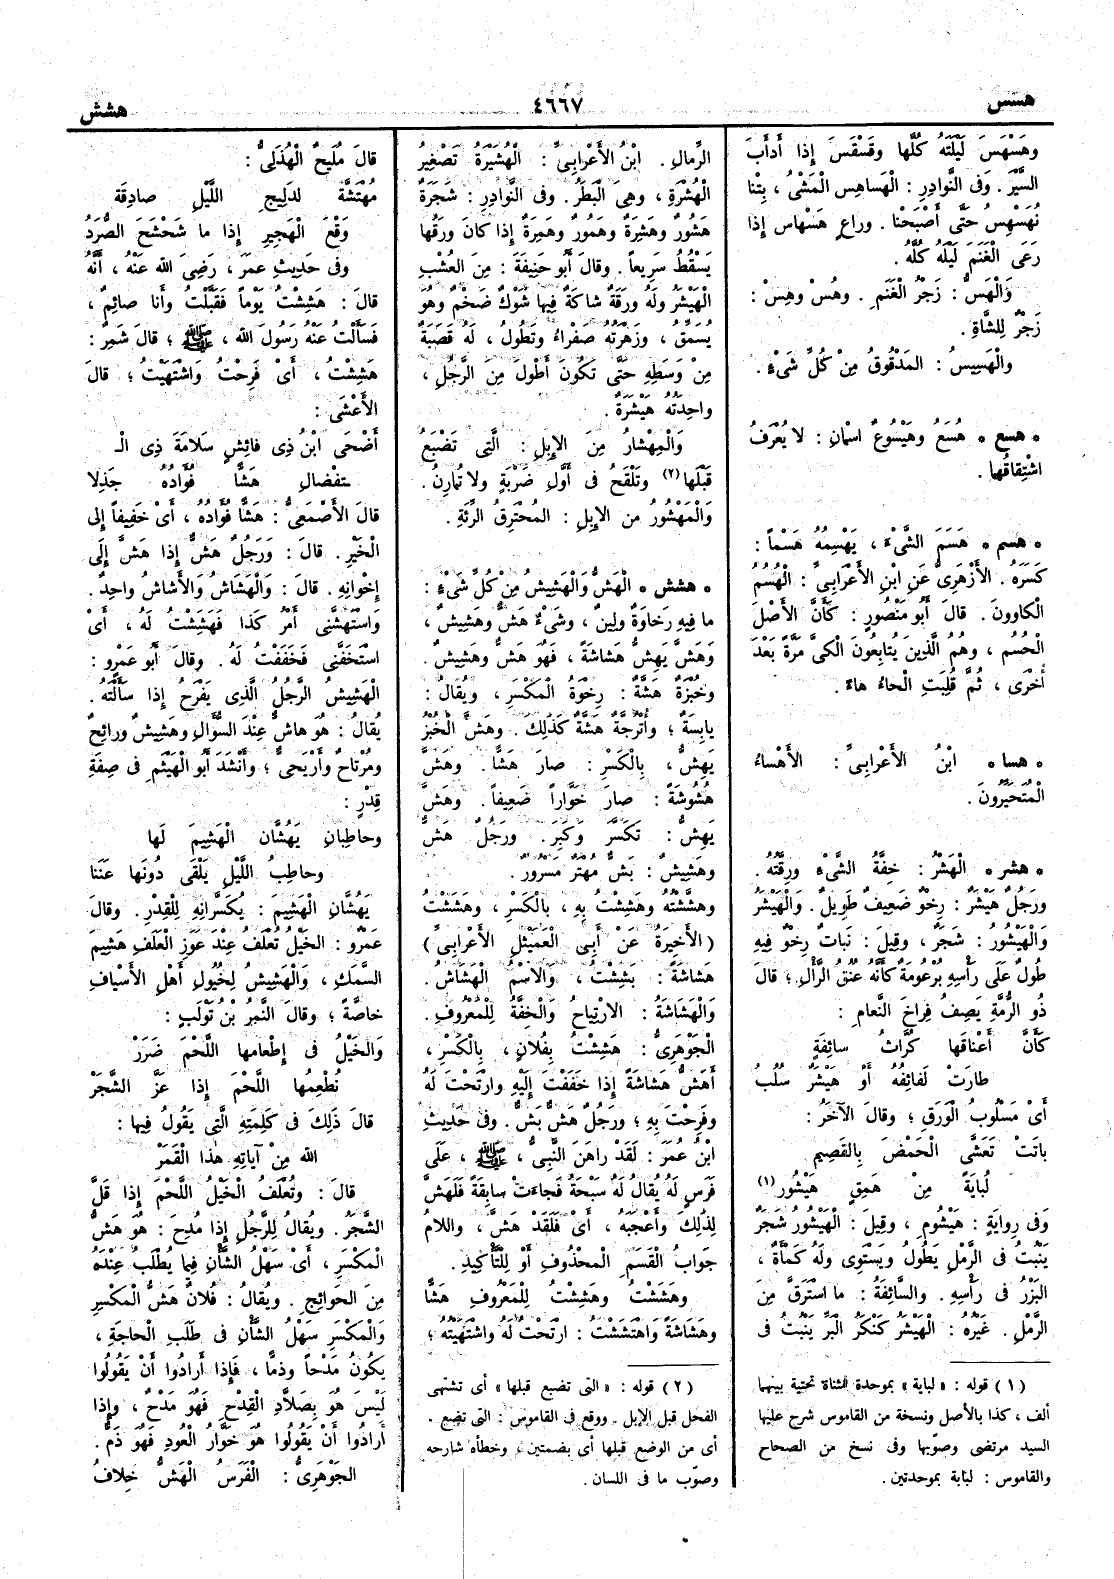 هسس
٤٦٦٧
هشش
وَهَسْهَسَ لَيْلَتَهُ كُلَّها وقَسْقَسَ إِذا أَدْأَبَ
السَّيْرَ . وَفى النَّوادِرِ : الْهَساهِس الْمَشْىُ ، بِتْنا
نُهَسْهِسُ حَتَّى أَصْبَحْنا . وراعٍ هَسْهاس إِذا
رَعَى الْغَنَمَ لَيْلَهُ كُلَّهُ .
وَالْهَسُّ : زَجْرُ الْغَنَمِ . وهُسْ وهِسْ :
زَجْرٌ لِلشَّاةِ .
والْهَسِيسُ : المَدْقُوقُ مِنْ كُلِّ شَىْءٍ .
* هسع * هُسَعُ وهَيْسُوعٌ اسْمانِ : لا يُعْرَفُ
اشْتِقاقُها .
* هسم * هَسَمَ الشَّىْءَ ، يَهْسِمُهُ هَسْماً :
كَسَرَهُ . الأَزْهَرِىُّ عَنِ ابْنِ الأَعْرابِىِّ : الْهُسُمُ
الْكاوونَ . قالَ أَبُو مَنْصُورٍ : كَأَنَّ الأَصْلَ
الْحُسُم ، وهُمُ الَّذِينَ يُتابِعُونَ الْكىَّ مَرَّةً بَعْدَ
أُخْرَى ، ثُمَّ قُلِبَتِ الْحاءُ هاءً .
* هسا * ابْنُ الأَعْرابِىِّ : الأَهْساءُ
الْمُتَحَيِّرُونَ .
* هشر * الْهَشْرُ : خِفَّةُ الشَّىْءِ ورِقَّتُهُ .
ورَجُلٌ هَيْشَرٌ : رِخْوٌ ضَعِيفٌ طَوِيلٌ . وَالْهَيْشَرُ
وَالْهَيْشُورُ : شَجَرٌ ، وقِيلَ : نَباتٌ رِخْوٌ فِيهِ
طُولٌ عَلَى رَأْسِهِ بُرْعُومَةٌ كَأَنَّهُ عُنُقُ الرَّأْلِ ؛ قالَ
ذُو الرُّمَّةِ يَصِفُ فِراخَ النَّعامِ :
كَأَنَّ أَعْناقَها كُرَّاثُ سائِفَةٍ
طارَتْ لَفائِفُهُ أَوْ هَيْشَرٌ سُلُبُ
أَىْ مَسْلُوبُ الْوَرَقِ ؛ وقالَ الآخَرُ :
باتَتْ تَعَشَّى الْحَمْضَ بِالقَصِيمِ
لُبايَةً مِنْ هَمِقٍ هَيْشُورِ (١)
وَفى رِوايَةٍ : هَيْشُومِ ، وَقِيلَ : الْهَيْشُورُ شَجَرٌ
يَنْبُتُ فى الرَّمْلِ يَطُولُ ويَسْتَوِى وَلَهُ كَمْأَةٌ ،
الْبَزْرُ فى رَأْسِهِ . والسَّائِفَةُ : ما اسْتَرَقَّ مِنَ
الرَّمْلِ . غَيْرُهُ : الْهَيْشَرُ كَنْكَرُ الْبَرِّ يَنْبُتُ فى
(١) قوله : « لباية » بموحدة فثناة تحتية بينهما
ألف ، كذا بالأصل ونسخة من القاموس شرح عليها
السيد مرتضى وصوّبها وفى نسخ من الصحاح
والقاموس : لبابة بموحدتين .
الرِّمالِ . ابْنُ الأَعْرابِىِّ : الْهُشَيْرَةُ تَصْغِيرُ
الْهُشْرَةِ ، وَهِىَ الْبَطَرُ . وفى النَّوادِرِ : شَجَرَةٌ
هَشُورٌ وهَشِرَةٌ وهَمُورٌ وهَمِرَةٌ إِذا كانَ ورَقُها
يَسْقُطُ سَرِيعاً . وقالَ أَبُو حَنِيفَةَ : مِنَ الْعُشْبِ
الْهَيْشَرُ ولَهُ ورَقَةٌ شاكَةٌ فِيها شَوْكٌ ضَخْمٌ وهُوَ
يُسَمَّقُ ، وزَهْرَتُهُ صَفْراءُ وتَطُولُ ، لَهُ قَصَبَةٌ
مِنْ وَسَطِهِ حَتَّى تَكُونَ أَطْوَلَ مِنَ الرَّجُلِ ،
واحِدَتُهُ هَيْشَرَةٌ .
وَالْمِهْشارُ مِنَ الإِبِلِ : الَّتِى تَضْبَعُ
قَبْلَها (٢) وتَلْقَحُ فى أَوَّلِ ضَرْبَةٍ ولا تُمارِنُ .
وَالْمَهْشُورُ من الإِبِلِ : الْمُحْتَرِقُ الرِّئَةِ .
* هشش * الْهَشُّ وَالْهَشِيشُ مِنْ كُلِّ شَىْءٍ :
ما فِيهِ رَخاوَةٌ ولِينٌ ، وشَىْءٌ هَشٌّ وهَشِيشٌ ،
وَهَشَّ يَهِشُّ هَشاشَةً ، فَهُوَ هَشٌّ وهَشِيشٌ .
وخُبْزَةٌ هَشَّةٌ : رِخْوَةُ الْمَكْسَرِ ، ويُقالُ :
يابِسَةٌ ؛ وأُتْرُجَّةٌ هَشَّةٌ كَذلِكَ . وهَشَّ الْخُبْزُ
يَهِشُّ ، بِالْكَسْرِ : صارَ هَشًّا . وهَشَّ
هُشُوشَةً : صارَ خَوَّاراً ضَعِيفاً . وهَشَّ
يَهِشُّ : تَكَسَّرَ وَكَبِرَ . ورَجُلٌ هَشٌّ
وهَشِيشٌ : بَشٌّ مُهْتَزٌ مَسْرُورٌ .
وهَشَشْتُهُ وهَشِشْتُ بِهِ ، بالْكَسْرِ ، وهَشَشْتُ
( الأَخِيرَةُ عَنْ أَبِى الْعَمَيْثَلِ الأَعْرابِىِّ )
هَشاشَةً : بَشِشْتُ ، وَالاسْمُ الْهَشاشُ .
وَالْهَشاشَةُ : الارْتِياحُ وَالْخِفَّةُ لِلْمَعْرُوفِ .
الْجَوْهَرِىُّ : هَشِشْتُ بِفُلانٍ ، بِالْكَسْرِ ،
أَهَشُّ هَشاشَةً إِذا خَفَفْتَ إِلَيْهِ وارْتَحْتَ لَهُ
وفَرِحْتَ بِهِ ؛ ورَجُلٌ هَشٌّ بَشٌّ . وفى حَدِيثِ
ابْنِ عُمَرَ : لَقَدْ راهَنَ النَّبِىُّ ، ﷺ ، عَلَى
فَرَسٍ لَهُ يُقالُ لَهُ سَبْحَةٌ فَجاءَتْ سابِقَةً فَلَهَشَّ
لِذلِكَ وأَعْجَبَهُ ، أَىْ فَلَقَدْ هَشَّ ، واللامُ
جَوابُ الْقَسَمِ الْمَحْذُوفِ أَوْ لِلتَّأْكِيدِ .
وهَشَشْتُ وهَشِشْتُ لِلْمَعْرُوفِ هَشًّا
وهَشاشَةً وَاهْتَشَشْتُ : ارْتَحْتُ لَهُ واشْتَهَيْتُهُ ؛
(٢) قوله : « التى تضبع قبلها » أى تشتهى
الفحل قبل الإبل . ووقع فى القاموس : التى تضع .
أى من الوضع قبلها أى بضمتين ، وخطأه شارحه
وصوّب ما فى اللسان .
قالَ مُلَيحٌ الْهُذَلِىُّ :
مُهْتَشَّةٌ لِدَلِيجِ اللَّيْلِ صادِقَة
وَقْعَ الْهَجِيرِ إِذا ما شَحْشَحَ الصُّرَدُ
وفى حَدِيثِ عُمَرَ ، رَضِىَ الله عَنْهُ ، أَنَّهُ
قالَ : هَشِشْتُ يَوْماً فَقَبَّلْتُ وأَنا صائِمٌ ،
فَسَأَلْتُ عَنْهُ رَسُولَ الله ، ﷺ ؛ قالَ شَمِرٌ :
هَشِشْتُ ، أَىْ فَرِحْتُ وَاشْتَهَيْتُ ؛ قالَ
الأَعْشَى :
أَضْحَى ابْنُ ذِى فائِشٍ سَلامَةَ ذِى الْـ
ـتفْضالِ هَشًّا فُؤادُهُ جَذِلا
قالَ الأَصْمَعِىُّ : هَشًّا فُؤادُهُ ، أَىْ خَفِيفاً إِلى
الْخَيْرِ . قالَ : وَرَجُلٌ هَشٌّ إِذا هَشَّ إِلَى
إِخْوانِهِ . قالَ : وَالْهَشَاشُ وَالأَشاشُ واحِدٌ .
وَاسْتَهَشَّنِى أَمْرُ كَذا فَهَشِشْتُ لَهُ ، أَىْ
اسْتَخَفَّنِى فَخَفَفْتُ لَهُ . وقالَ أَبُو عَمْرٍو :
الْهَشِيشُ الرَّجُلُ الَّذِى يَفْرَحُ إِذا سَأَلْتَهُ .
يُقالُ : هُوَ هاشٌّ عِنْدَ السُّؤَالِ وهَشِيشٌ ورائِحٌ
ومُرْتاحٌ وأَرْيَحِىٌّ ؛ وأَنْشَدَ أَبُو الْهَيْثَمِ فى صِفَةِ
قِدْرٍ :
وحاطِبانِ يَهُشَّانِ الْهَشِيمَ لَها
وحاطِبُ اللَّيْلِ يَلْقَى دُونَها عَنَنَا
يَهُشَّانِ الْهَشِيمَ : يُكَسِّرانِهِ لِلْقِدْرِ . وقالَ
عَمْرٌو : الْخَيْلُ تُعْلَفُ عِنْدَ عَوَزِ الْعَلَفِ هَشِيمَ
السَّمَكِ ، وَالْهَشِيشُ لِخُيُولِ أَهْلِ الأَسْيافِ
خاصَّةً ؛ وقالَ النَّمِرُ بْنُ تَوْلَبٍ :
وَالْخَيْلُ فى إِطْعامِها اللَّحْمَ ضَرَرْ
نُطْعِمُها اللَّحْمَ إِذا عَزَّ الشَّجَرْ
قالَ ذلِكَ فى كَلِمَتِهِ الَّتِى يَقُولُ فِيها :
الله مِنْ آياتِهِ هذا الْقَمَرْ
قالَ : وتُعْلَفُ الْخَيْلُ اللَّحْمَ إِذا قَلَّ
الشَّجَرُ . ويُقالُ لِلرَّجُلِ إِذا مُدِحَ : هُوَ هَشُّ
الْمَكْسَرِ ، أَىْ سَهْلُ الشَّأْنِ فِيما يُطْلَبُ عِنْدَهُ
مِنَ الحَوائِجِ . ويُقالُ : فُلانٌ هَشُّ الْمَكْسِرِ
وَالْمَكْسَرِ سَهْلُ الشَّأْنِ فى طَلَبِ الْحاجَةِ ،
يَكُونُ مَدْحاً وذمًّا ، فَإِذا أَرادُوا أَنْ يَقُولُوا
لَيْسَ هُوَ بِصَلاَّدِ الْقِدْحِ فَهُوَ مَدْحٌ ، وإِذا
أَرادُوا أَنْ يَقُولُوا هُوَ خوَّارُ الْعُودِ فَهُوَ ذَمٌّ .
الجَوْهَرِىُّ : الْفَرَسُ الْهَشُّ خِلافُ